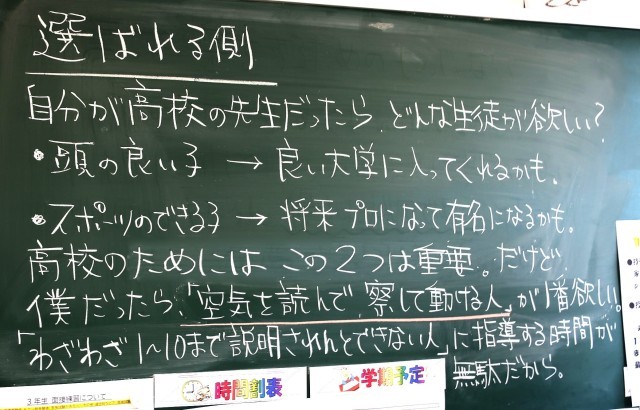 選ばれる側
自分が高校の先生だったら、どんな生徒が欲しい?
• 頭の良い子 → 良い大学に入ってくれるかも。
• スポーツのできる子 → 将来プロになって有名になるかも。
高校のためには この2つは重要。だけど
僕だったら、「空気を読んで、察して動ける人」が1番欲しい。
「わざわざ 1~10まで説明されんとできない人」に指導する時間が
無駄だから。
3年生 面接練習について
時間割表
学期予定